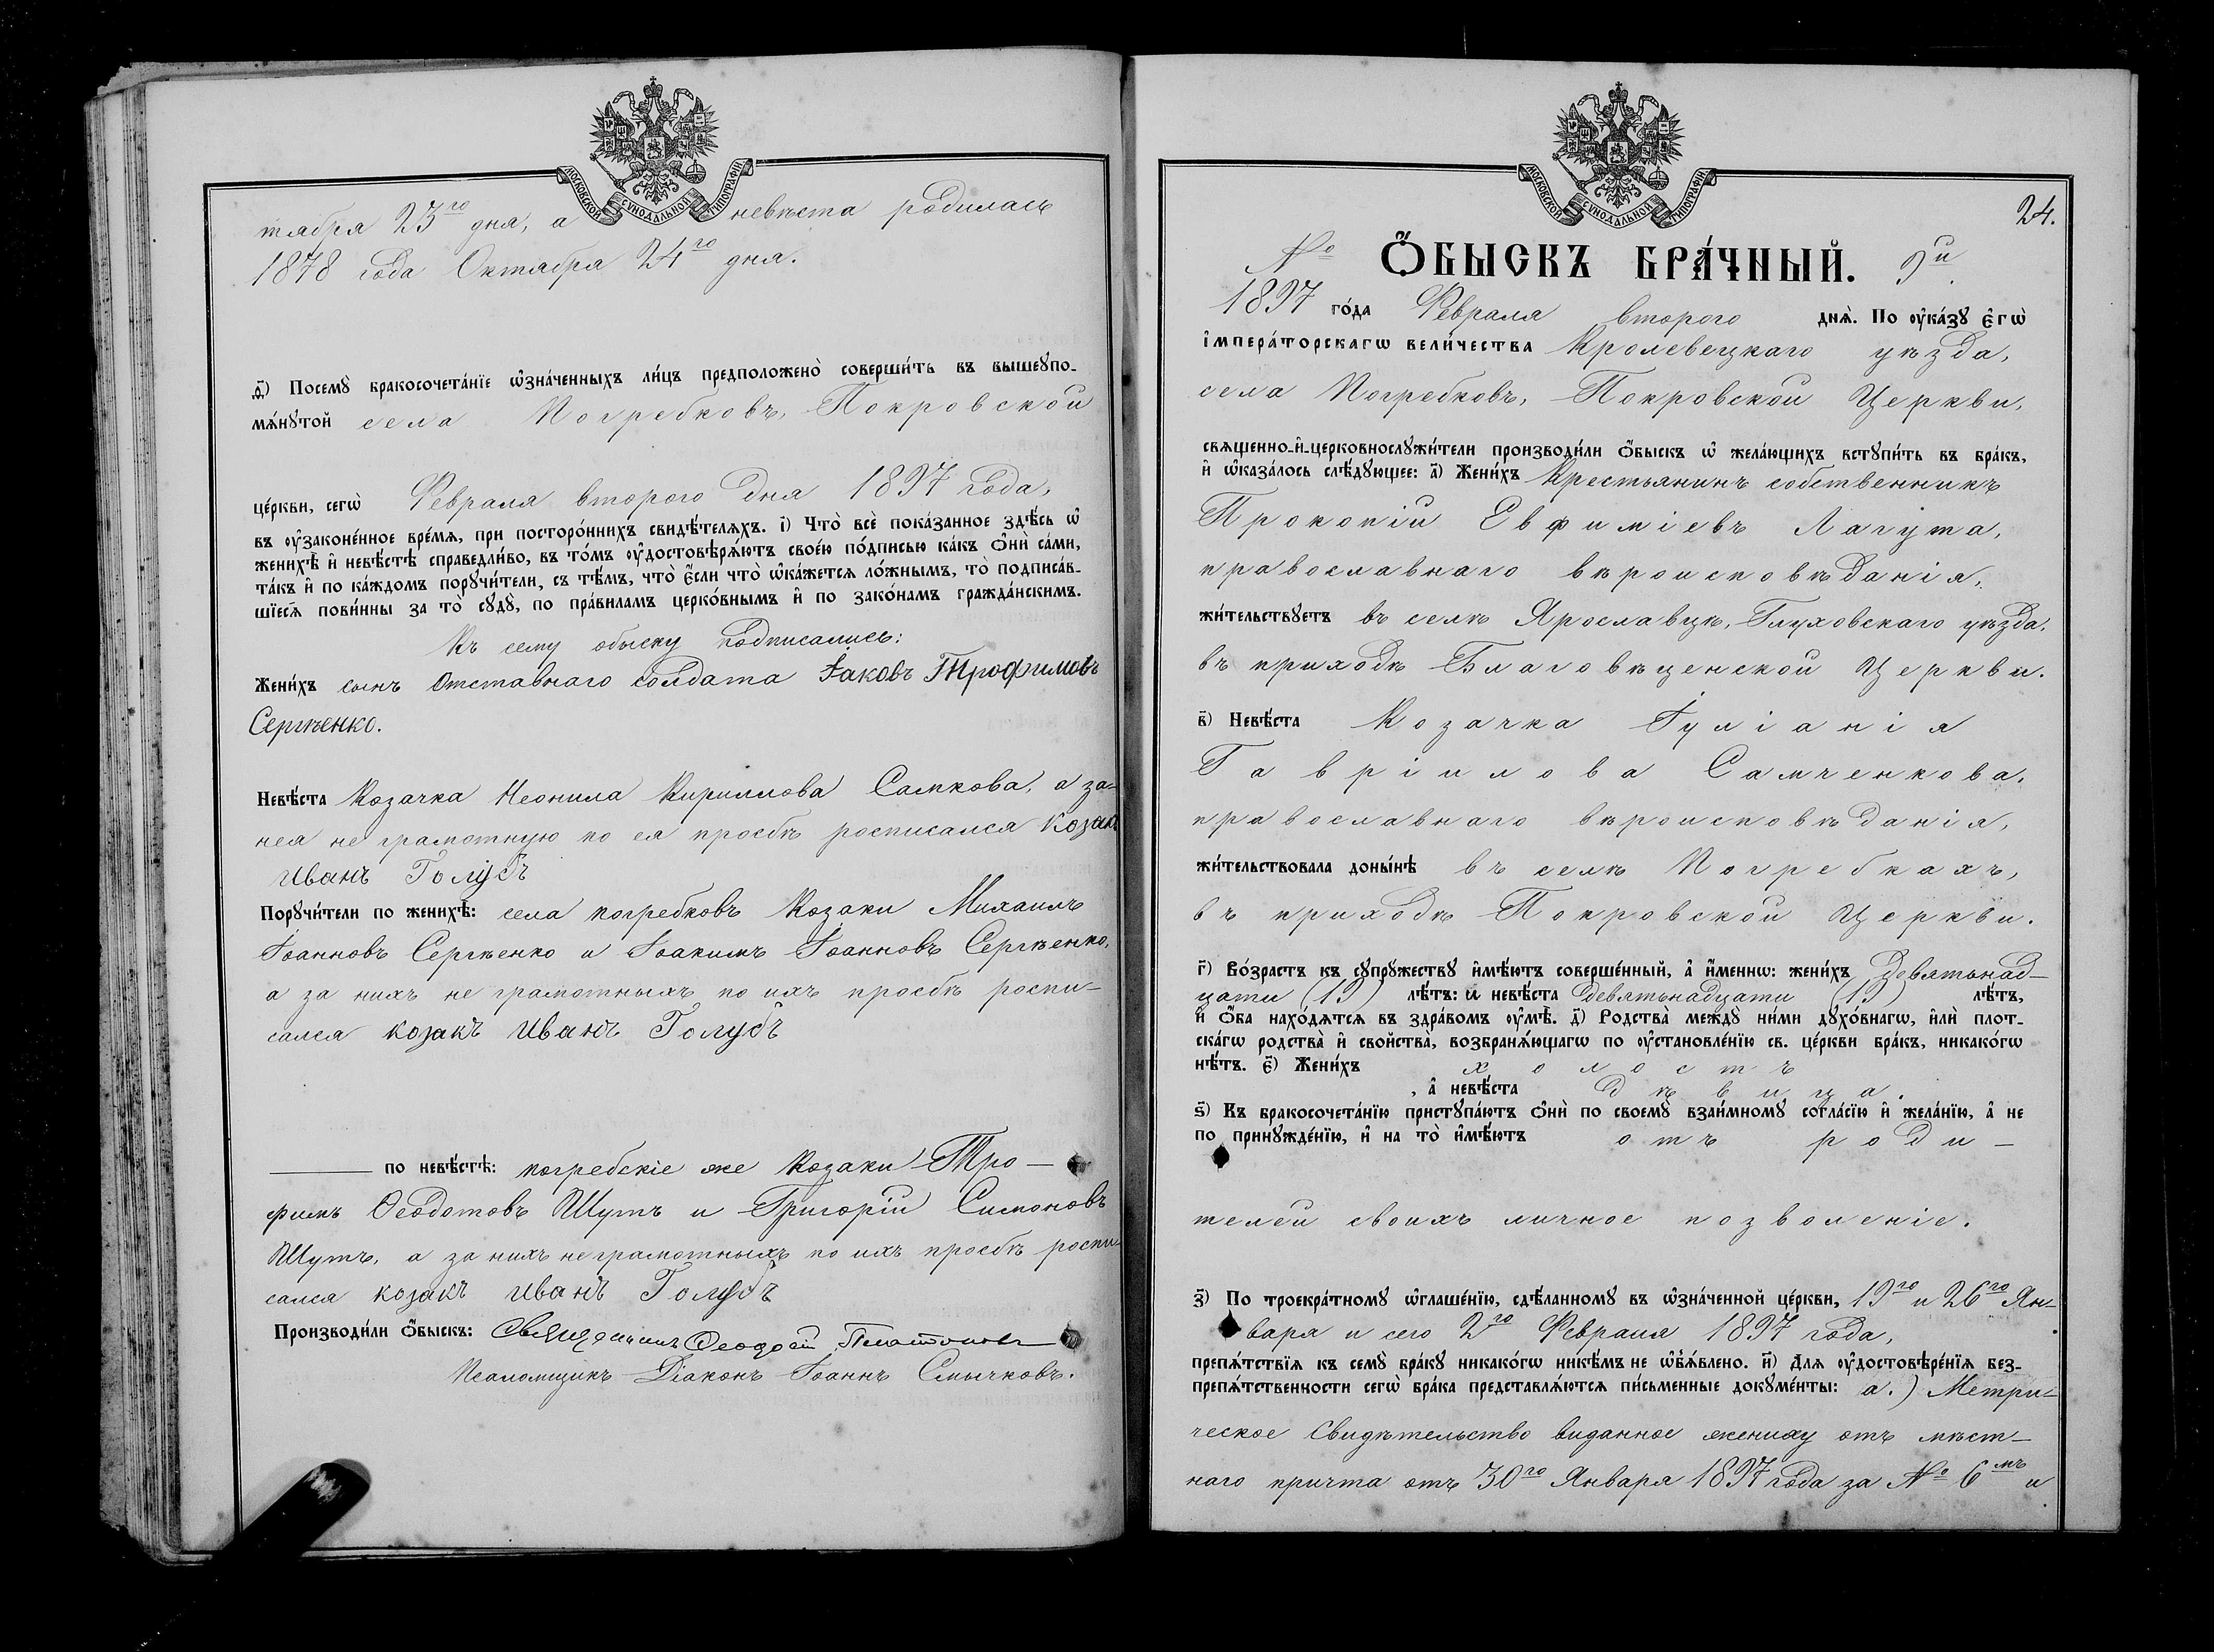 МОСКОВСКОЙ СѴНОДАЛЬНОЙ ТИПОГРАФІИ
тября 23го дня, а невѣста родилась
1878 года Октября 24го дня.
ѳ҃) Посемꙋ̀ бракосочета́нїе ѡ҆зна́ченныхъ ли́цъ предположено̀ соверши́ть въ вышеꙋпо-
мѧ́нꙋтой села Погребковъ, Покровской
це́ркви, сегѡ̀ Февраля второго дня 1897 года,
въ ᲂу҆законе́нное вре́мѧ, при посторо́ннихъ свидѣ́телѧхъ. і҃) Что̀ всѐ пока́занное здѣ́сь ѡ҆
женихѣ̀ и҆ невѣ́стѣ справедли́во, въ то́мъ ᲂу҆достовѣрѧ́ютъ свое́ю по́дписью ка́къ ѻ҆нѝ са́ми,
та́къ и҆ по ка́ждомъ порꙋчи́тели, съ тѣ́мъ, что̀ є҆́сли что̀ ѡ҆ка́жетсѧ ло́жнымъ, то̀ подписа́в-
шїесѧ пови́нны за то̀ сꙋдꙋ̀, по пра́виламъ церко́внымъ и҆ по зако́намъ гражда́нскимъ.
Къ сему обыску подписались:
Жени́хъ сынъ Отставнаго солдата Іаковъ Трофимовъ
Сергѣенко.
Невѣ́ста Козачка Неонила Кириллова Самкова, а за-
нея не грамотную по ея просбѣ росписался козакъ
иванъ Голубъ
Порꙋчи́тели по женихѣ̀: села погребковъ Козаки Михаилъ
Іоанновъ Сергѣенко и Іоакимъ Іоанновъ Сергѣенко,
а за нихъ не грамотныхъ по ихъ просбѣ роспи-
сался козакъ иванъ Голубъ
по невѣ́стѣ: погребскіе же Козаки Тро-
фимъ Ѳеодотовъ Шутъ и Григорій Симоновъ
Шутъ, а за нихъ не грамотныхъ по ихъ просбѣ роспи-
сался козакъ иванъ Голубъ
Производи́ли ѻ҆́быскъ: Священникъ Ѳеодосій Платоновъ
Псаломщикъ Діаконъ Іоаннъ Смычковъ.
МОСКОВСКОЙ СѴНОДАЛЬНОЙ ТИПОГРАФІИ
24.
№ Ѻ҆́БЫСКЪ БРА́ЧНЫЙ. 9й
1897 го́да Февраля второго днѧ̀. По ᲂу҆ка́зꙋ є҆гѡ̀
і҆мпера́торскагѡ вели́чества Кролевецкаго уѣзда,
села Погребковъ, Покровской Церкви,
свѧщенно-и҆-церковнослꙋжи́тели производи́ли ѻ҆́быскъ ѡ҆ жела́ющихъ встꙋпи́ть въ бра́къ,
и҆ ѡ҆каза́лось слѣ́дꙋющее: а҃) Жени́хъ Крестьянинъ собственникъ
Прокопій Евфиміевъ Лагута,
православнаго вѣроисповѣданія,
жи́тельствꙋетъ въ селѣ Ярославцѣ, Глуховскаго уѣзда,
въ приходѣ Благовѣщенской Церкви.
в҃) Невѣ́ста Козачка Іуліанія
Гавріилова Самченкова,
православнаго вѣроисповѣданія,
жи́тельствовала доны́нѣ въ селѣ Погребкахъ,
въ приходѣ Покровской Церкви.
г҃) Во́зрастъ къ сꙋпрꙋ́жествꙋ и҆мѣ́ютъ соверше́нный, а҆ и҆́меннѡ: жени́хъ девятьнад-
цати (19) лѣ́тъ: и невѣ́ста девятьнадцати (19) лѣ́тъ,
и҆ ѻ҆́ба нахо́дѧтсѧ въ здра́вомъ ᲂу҆мѣ̀. д҃) Родства̀ междꙋ̀ ни́ми дꙋхо́внагѡ, и҆лѝ плот-
ска́гѡ родства̀ и҆ свойства̀, возбранѧ́ющагѡ по ᲂу҆становле́нїю св. це́ркви бра́къ, никако́гѡ
нѣ́тъ. є҃) Жени́хъ холостъ
, а҆ невѣ́ста дѣвица.
ѕ҃) Къ бракосочета́нїю пристꙋпа́ютъ ѻ҆нѝ по своемꙋ̀ взаи́мномꙋ согла́сїю и҆ жела́нїю, а҆ не
по принꙋжде́нїю, и҆ на то̀ и҆мѣ́ютъ отъ роди-
телей своихъ личное позволеніе.
з҃) По троекра́тномꙋ ѡ҆глаше́нїю, сдѣ́ланномꙋ въ ѡ҆зна́ченной це́ркви, 19го и 26го Ян-
варя и сего 2го Февраля 1897 года,
препѧ́тствїѧ къ семꙋ̀ бра́кꙋ никако́гѡ никѣ́мъ не ѡ҆б̾ѧ́влено. и҃) Длѧ ᲂу҆достовѣре́нїѧ без-
препѧ́тственности сегѡ̀ бра́ка представлѧ́ютсѧ пи́сьменные докꙋме́нты: а.) Метри-
ческое свидѣтельство виданное жениху отъ мѣст-
наго причта отъ 30го Января 1897 года за № 6мъ и